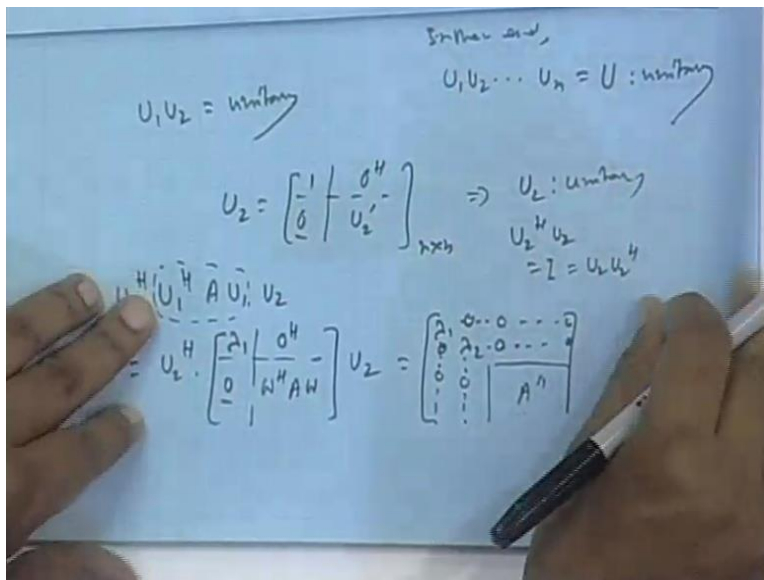 In the end,
U₁U₂ = unitary
U₁U₂ ⋯ Uₙ = U : unitary
U₂ = [ 1 | 0ᴴ ; 0 | U₂' ]ₙₓₙ ⇒ U₂ : unitary
U₂ᴴ U₂
= I = U₂U₂ᴴ
ᴴ U₁ᴴ A U₁ U₂
= U₂ᴴ · [ λ₁ | 0ᴴ ; 0 | Wᴴ A W ] U₂ = [ λ₁ 0 ‥ 0 - - - 0 ; 0 λ₂ 0 - - - 0 ; 0 0 | A'' ]